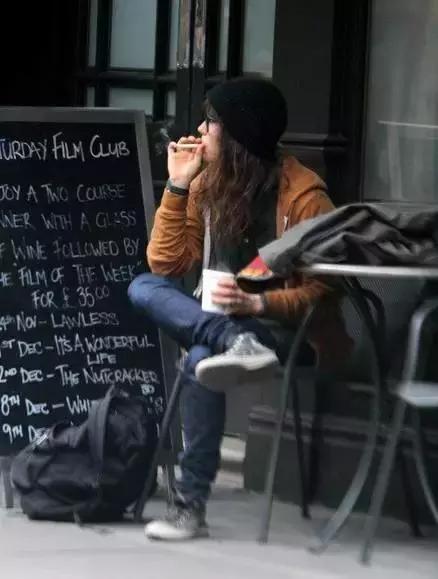 TURDAY FILM CLUB
JOY A TWO COURSE
NNER WITH A GLASS
F WINE FOLLOWED BY
HE FILM OF THE WEEK
FOR £35.00
4TH NOV - LAWLESS
ST DEC - IT'S A WONDERFUL
LIFE
2ND DEC - THE NUTCRACKER
8TH DEC - WHI
9TH DEM